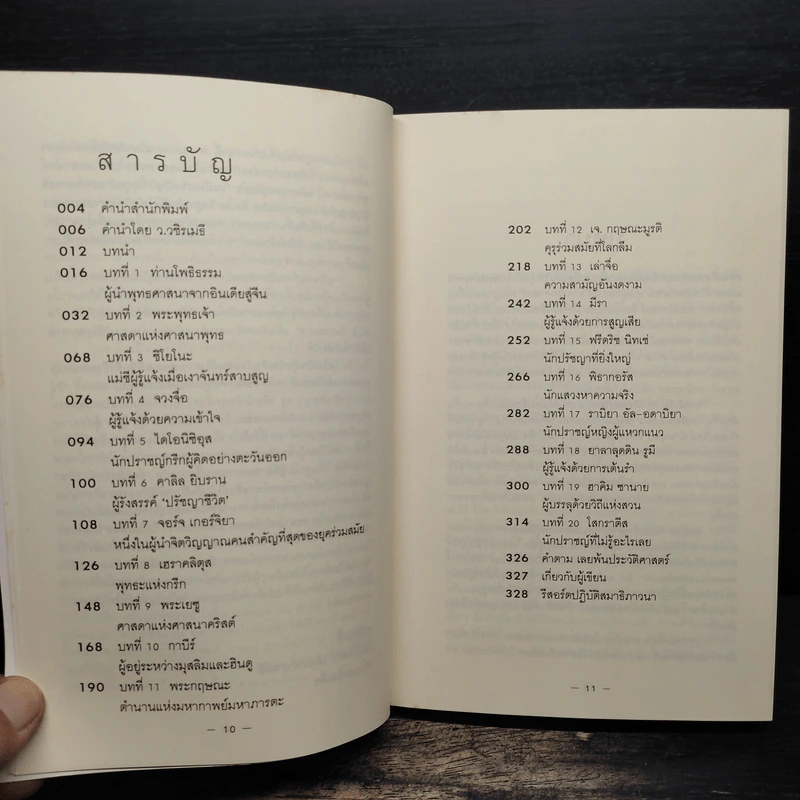 สารบัญ
004 คำนำสำนักพิมพ์
006 คำนำโดย ว.วชิรเมธี
012 บทนำ
016 บทที่ 1 ท่านโพธิธรรม
ผู้นำพุทธศาสนาจากอินเดียสู่จีน
032 บทที่ 2 พระพุทธเจ้า
ศาสดาแห่งศาสนาพุทธ
068 บทที่ 3 ชิโยโนะ
แม่ชีผู้รู้แจ้งเมื่อเงาจันทร์สาบสูญ
076 บทที่ 4 จวงจื่อ
ผู้รู้แจ้งด้วยความเข้าใจ
094 บทที่ 5 ไดโอนิซิอุส
นักปราชญ์กรีกผู้คิดอย่างตะวันออก
100 บทที่ 6 คาลิล ยิบราน
ผู้รังสรรค์ ‘ปรัชญาชีวิต’
108 บทที่ 7 จอร์จ เกอร์จิยา
หนึ่งในผู้นำจิตวิญญาณคนสำคัญที่สุดของยุคร่วมสมัย
126 บทที่ 8 เฮราคลิตุส
พุทธะแห่งกรีก
148 บทที่ 9 พระเยซู
ศาสดาแห่งศาสนาคริสต์
168 บทที่ 10 กาบีร์
ผู้อยู่ระหว่างมุสลิมและฮินดู
190 บทที่ 11 พระกฤษณะ
ตำนานแห่งมหากาพย์มหาภารตะ
— 10 —
202 บทที่ 12 เจ. กฤษณะมูรติ
คุรุร่วมสมัยที่โลกลืม
218 บทที่ 13 เล่าจื่อ
ความสามัญอันงดงาม
242 บทที่ 14 มีรา
ผู้รู้แจ้งด้วยการสูญเสีย
252 บทที่ 15 ฟรีดริช นิทเช่
นักปรัชญาที่ยิ่งใหญ่
266 บทที่ 16 พิธากอรัส
นักแสวงหาความจริง
282 บทที่ 17 ราบิยา อัล-อดาบิยา
นักปราชญ์หญิงผู้แหวกแนว
288 บทที่ 18 ยาลาลุดดิน รูมี
ผู้รู้แจ้งด้วยการเต้นรำ
300 บทที่ 19 ฮาคิม ซานาย
ผู้บรรลุด้วยวิถีแห่งสวน
314 บทที่ 20 โสกราตีส
นักปราชญ์ที่ไม่รู้อะไรเลย
326 คำถาม เลยพ้นประวัติศาสตร์
327 เกี่ยวกับผู้เขียน
328 รีสอร์ตปฏิบัติสมาธิภาวนา
— 11 —